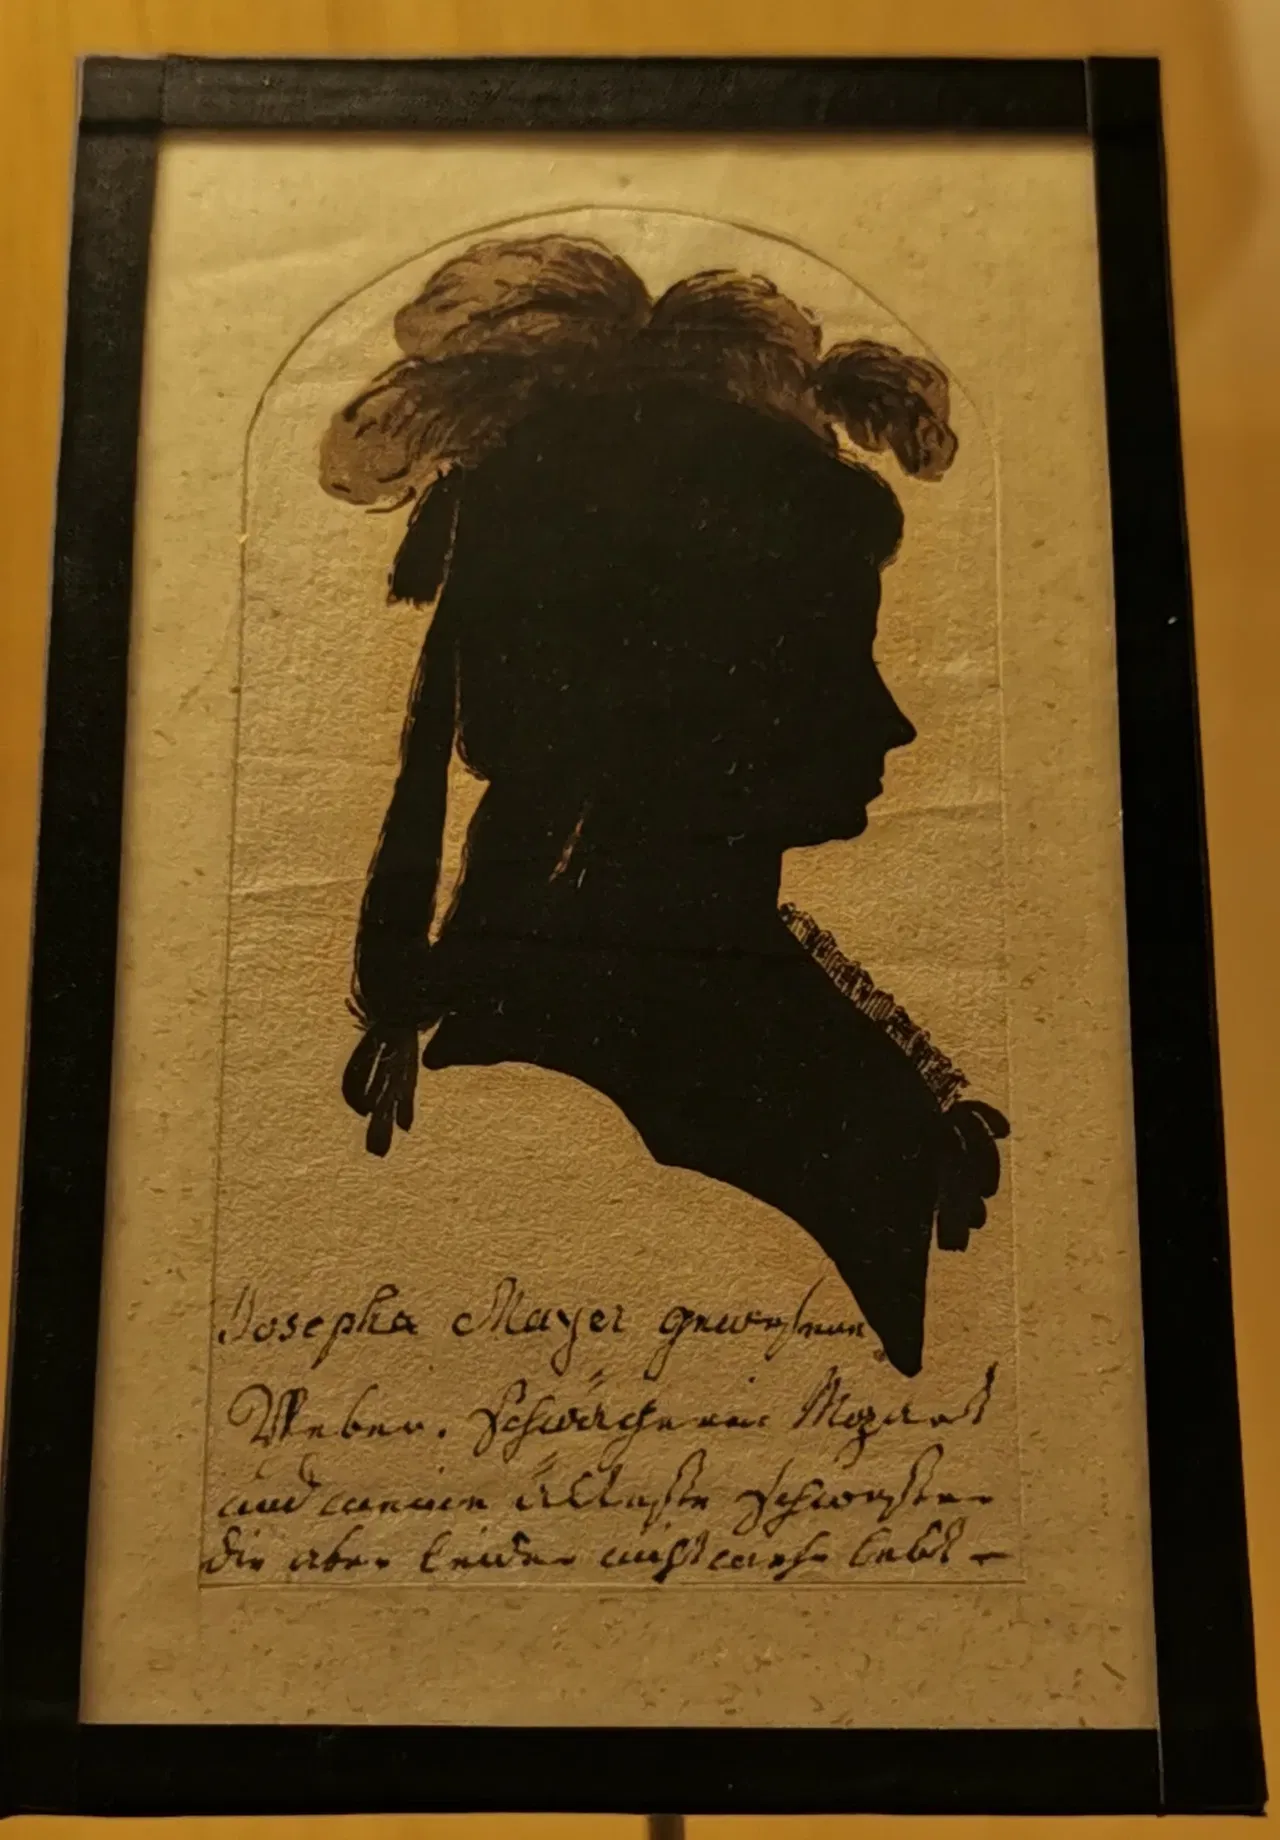 Josepha Mayer gewesene
Weber. Schwägerin Mozart
und meine älteste Schwester
die aber leider nicht mehr lebt –